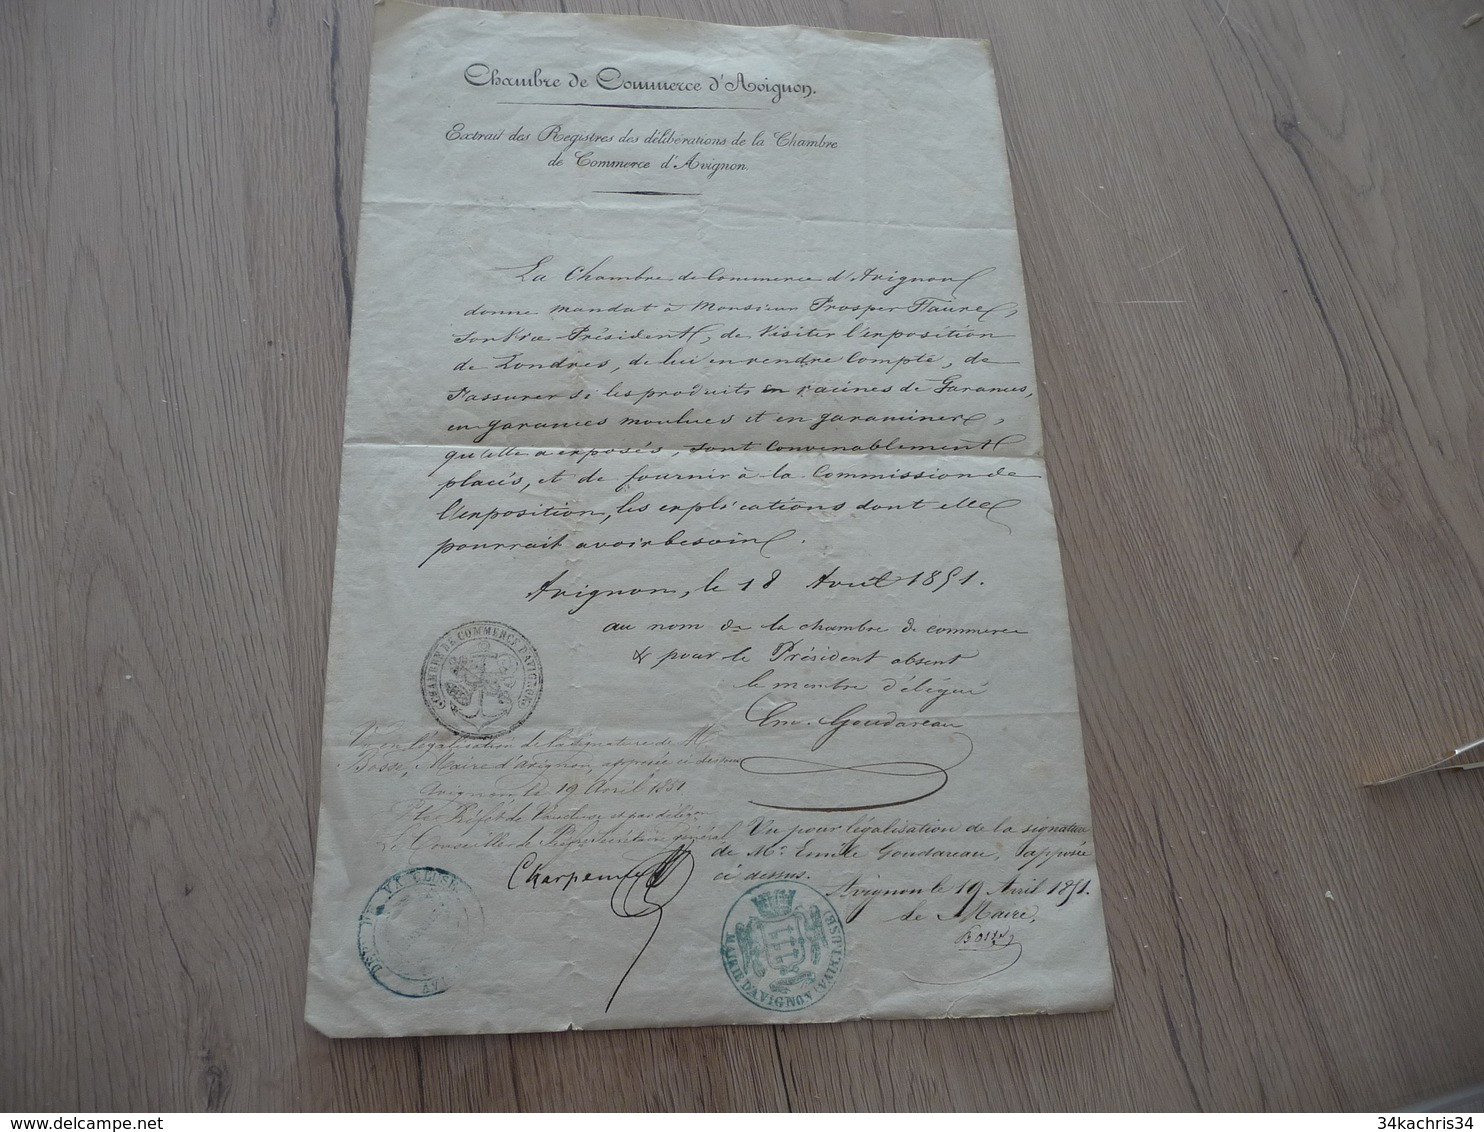 Chambre de Commerce d'Avignon.
Extrait des Registres des délibérations de la Chambre
de Commerce d'Avignon.
La Chambre de Commerce d'Avignon
donne mandat à Monsieur Prosper Faure,
son Vice Président, de visiter l'exposition
de Londres, de lui en rendre Compte, de
s'assurer si les produits en racines de Garances,
en garances moulues et en garancines,
qu'elle a exposés, sont convenablement
placés, et de fournir à la Commission de
l'exposition, les explications dont elle
pourrait avoir besoin.
Avignon, le 18 Avril 1851.
au nom de la chambre de commerce
& pour le Président absent
le membre délégué
Em. Goudareau
CHAMBRE DE COMMERCE D'AVIGNON
Vu en légalisation de la signature de Mr
Bosse, Maire d'Avignon, apposée ci dessus
Avignon le 19 Avril 1851
Pr le Préfet de Vaucluse et par délégon
Le Conseiller de Préfre Secrétaire général
Vu pour légalisation de la signature
de Mr Emile Goudareau, apposée
ci dessus.
Avignon le 19 Avril 1851.
le Maire,
Charpenne
VAUCLUSE
MAIRIE D'AVIGNON (VAUCLUSE)
34kachris34